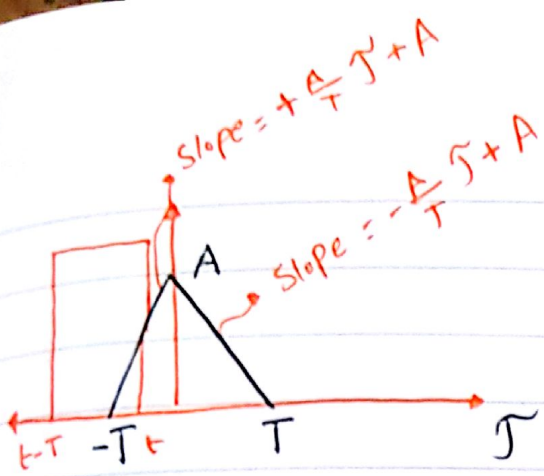 slope = + A/T τ + A
A
slope = - A/T τ + A
t-T -T t T τ